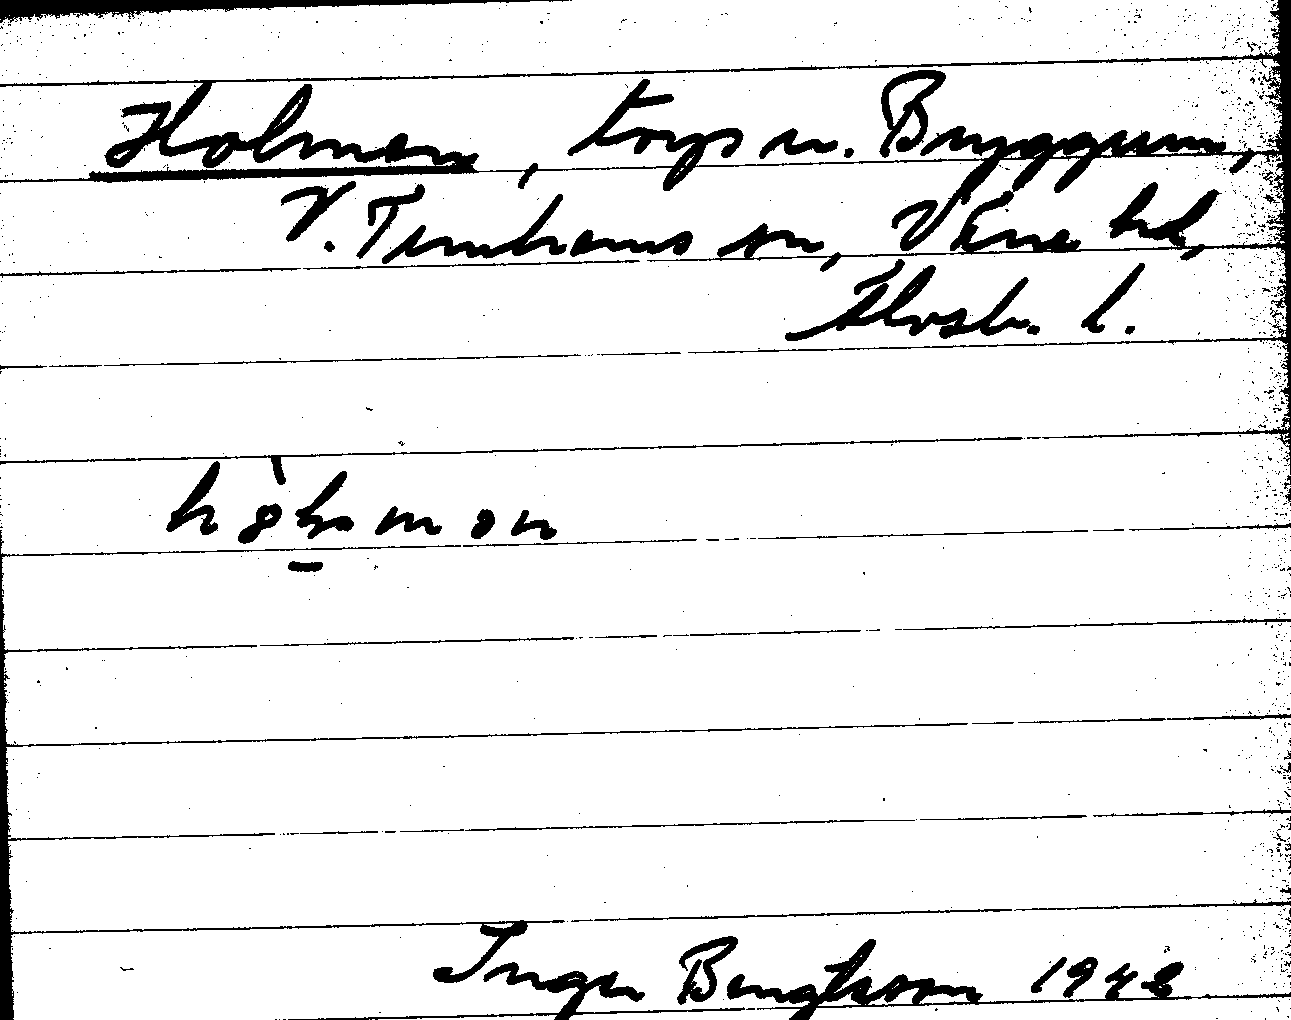 Holmen, torp u. Bryggum,
V. Tunhems sn, Väne hd,
Älvsb. l.
Inga Bengtsson 1942